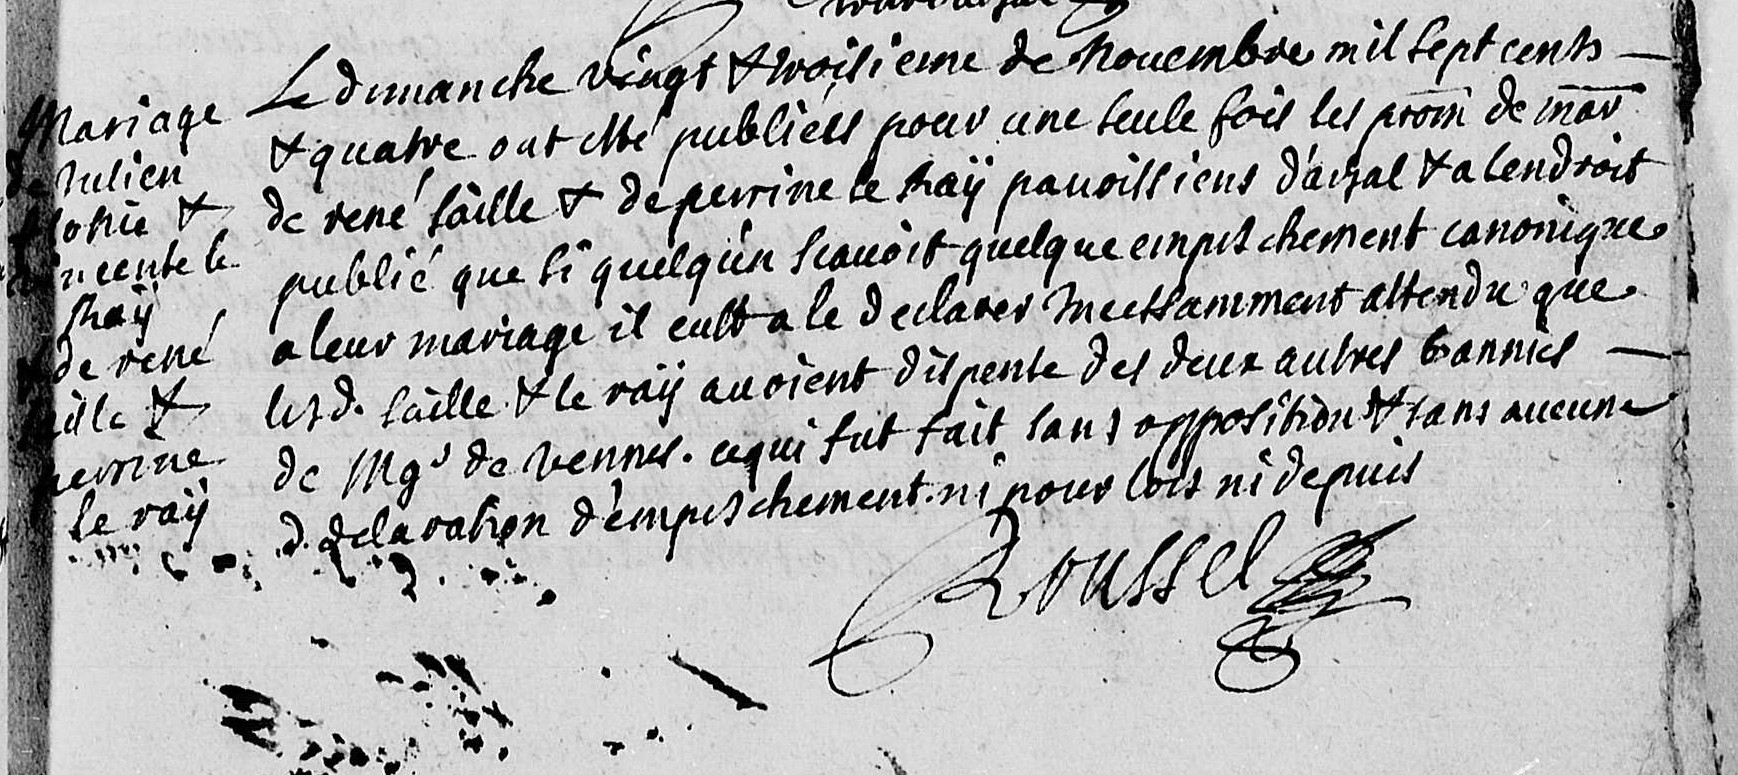 Mariage
de Julien
&
le
Raÿ
de rené
&
perrine
le raÿ
Le dimanche vingt & troisieme de Nouembre mil sept cents —
& quatre ont esté publiées pour une seule fois les prom de mar
de rené saille & de perrine le Raÿ paroissiens d'arzal & a lendroit
publié que si quelqu'un scauoit quelque empeschement canonique
a leur mariage il eust a le declarer Incessamment attendu que
lesd. saille & le raÿ auoient dispense des deux autres bannies —
de Mgr de vennes. cequi fut fait sans opposition & sans aucune
declaration d'empeschement. ni pour lors ni depuis
Roussel